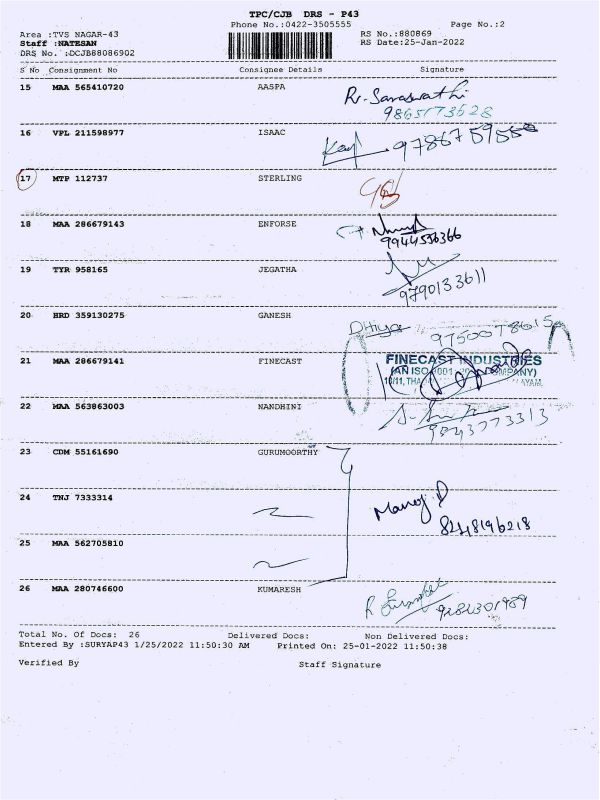 TPC/CJB DRS - P43
Phone No.:0422-3505555 Page No.:2
Area :TVS NAGAR-43 RS No.:880869
Staff :NATESAN RS Date:25-Jan-2022
DRS No. :DCJB88086902
S No Consignment No Consignee Details Signature
15 MAA 565410720 AASPA R. Saraswathi
9865173528
16 VPL 211598977 ISAAC
17 MTP 112737 STERLING
18 MAA 286679143 ENFORSE
9944536366
19 TYR 958165 JEGATHA
9790133611
20 HRD 359130275 GANESH Dhiya
9750078615
21 MAA 286679141 FINECAST FINECAST INDUSTRIES
(AN ISO 9001 COMPANY)
10/11, THA
22 MAA 563863003 NANDHINI
9843773313
23 CDM 55161690 GURUMOORTHY
24 TNJ 7333314 Manoj D
8248196218
25 MAA 562705810
26 MAA 280746600 KUMARESH
Total No. Of Docs: 26 Delivered Docs: Non Delivered Docs:
Entered By :SURYAP43 1/25/2022 11:50:30 AM Printed On: 25-01-2022 11:50:38
Verified By Staff Signature